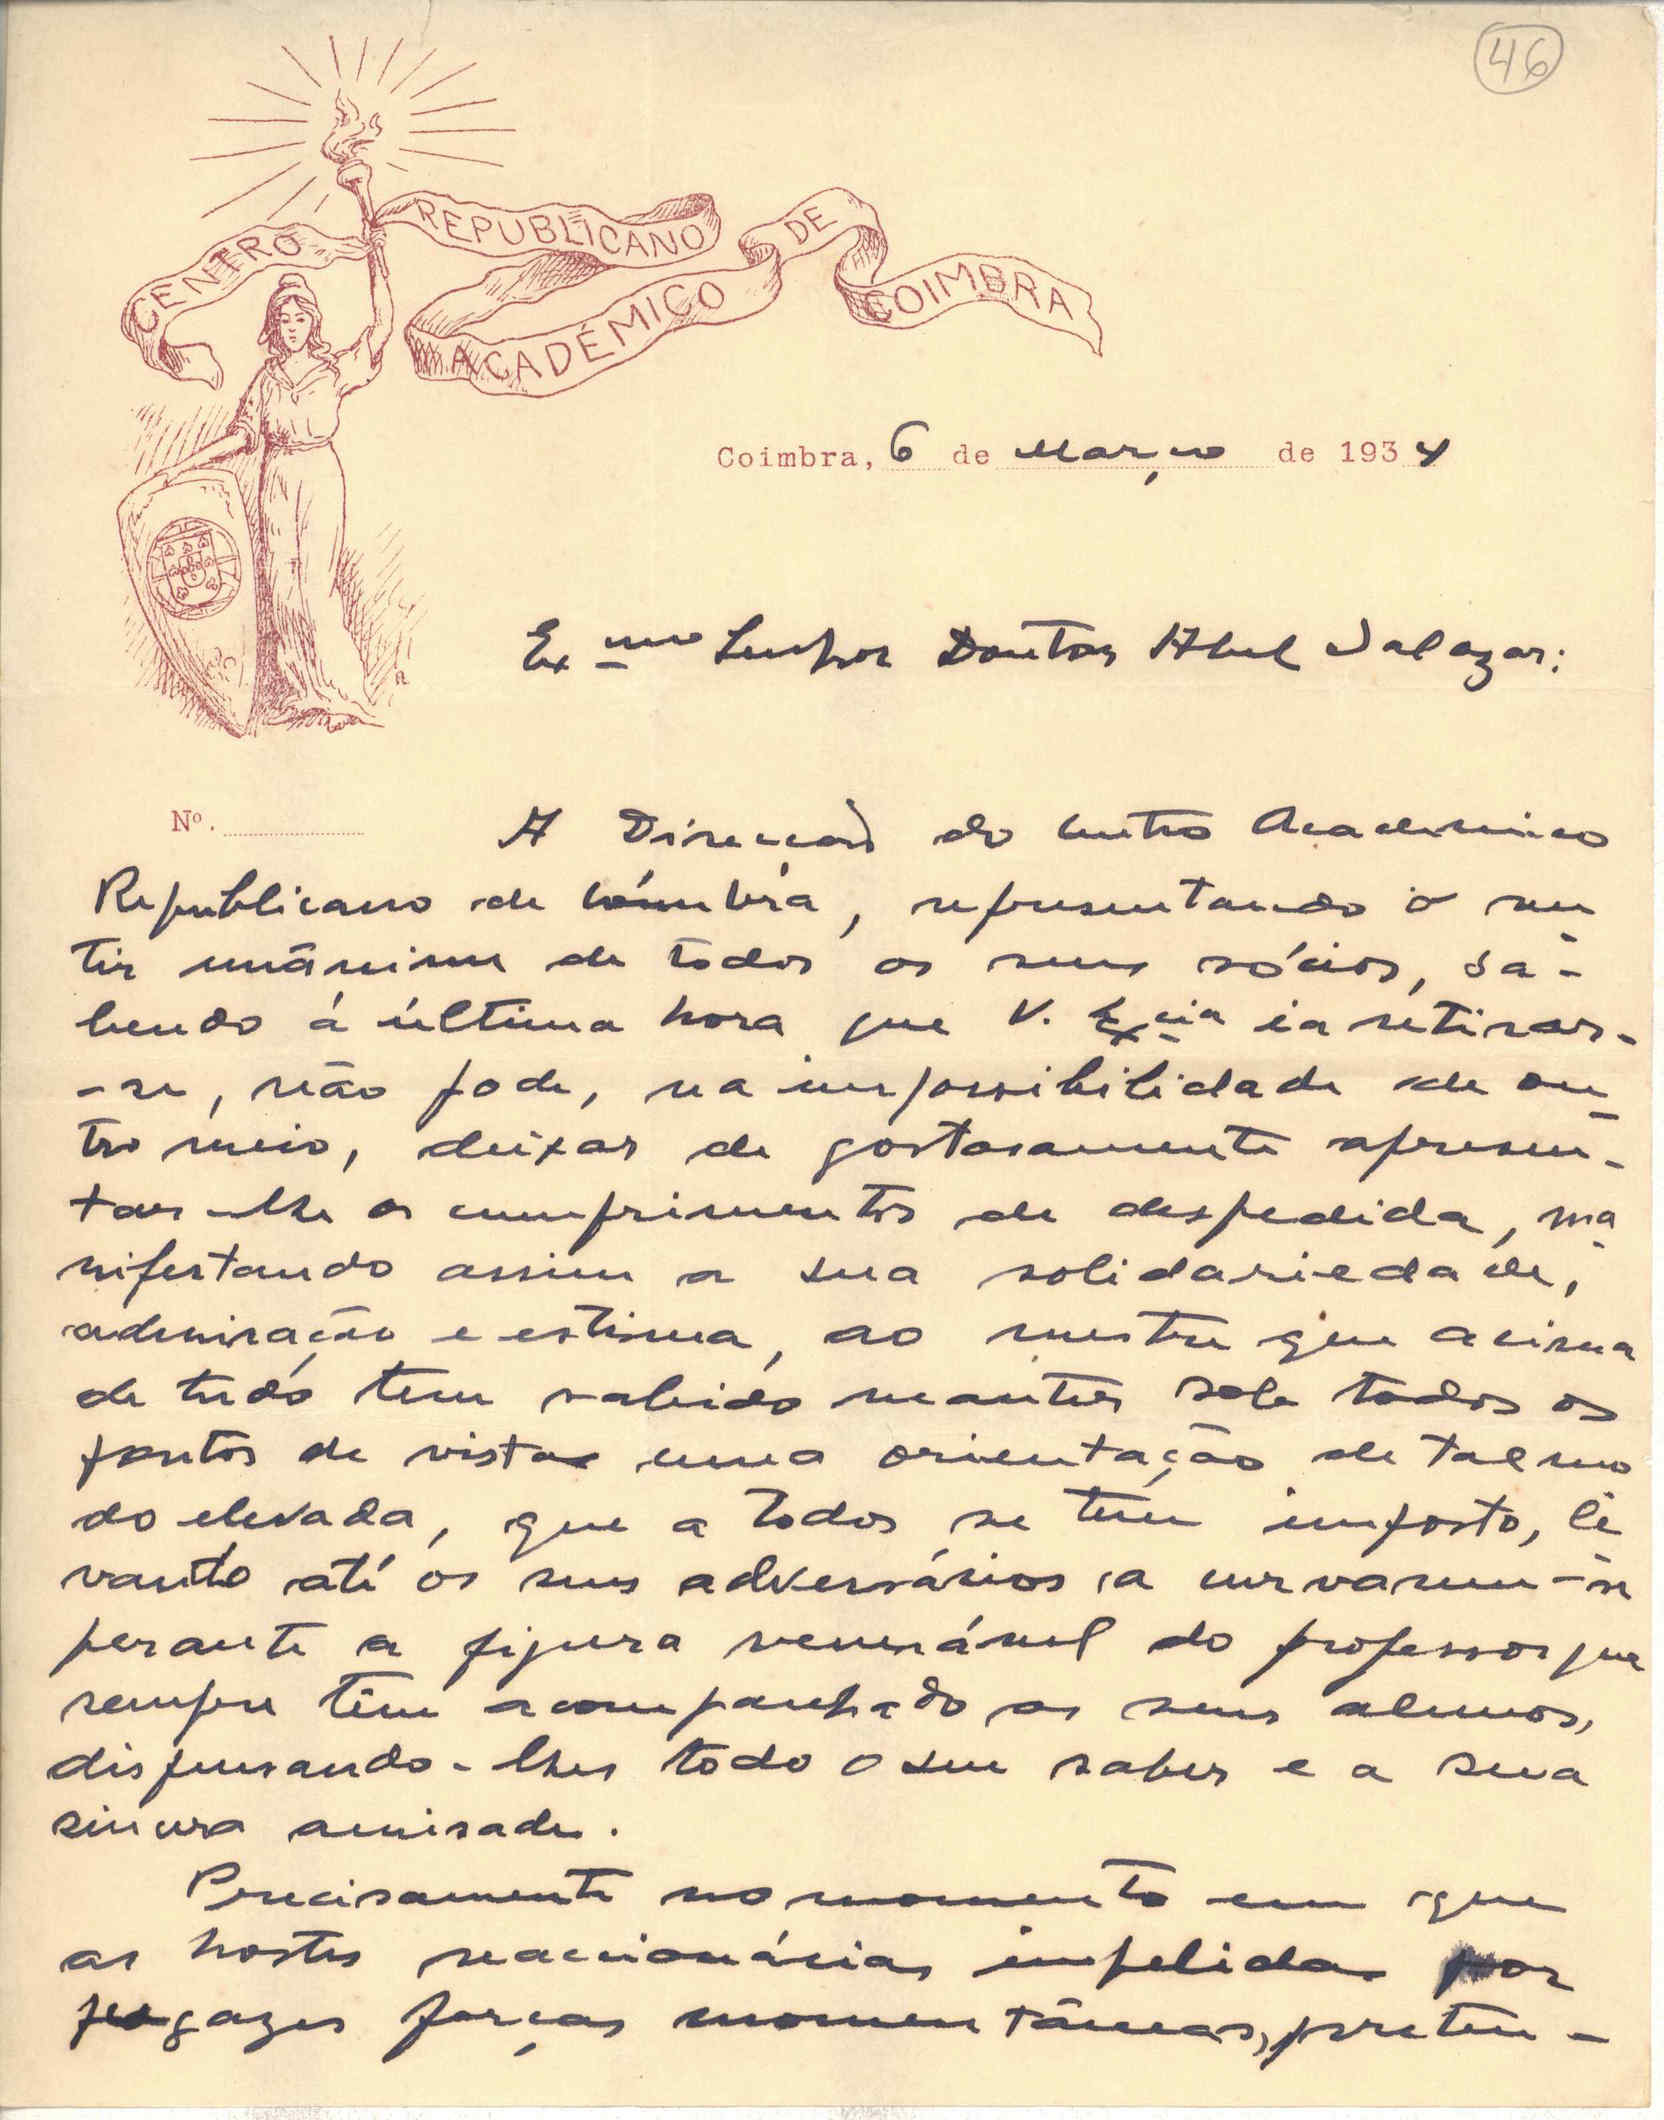 46
CENTRO REPUBLICANO DE
ACADÉMICO COIMBRA
Coimbra, 6 de Março de 1934
Ex.mo Senhor Doutor Abel Salazar:
Nº.
A Direcção do Centro Academico
Republicano de Coimbra, representando o sen-
tir unânime de todos os seus sócios, sa-
bendo á última hora que V. Ex.cia ia retirar-
-se, não pode, na impossibilidade de ou-
tro meio, deixar de gostosamente apresen-
tar-lhe os cumprimentos de despedida, ma-
nifestando assim a sua solidariedade,
admiração e estima, ao mestre que acima
de tudo tem sabido manter sob todos os
pontos de vista uma orientação de tal mo
do elevada, que a todos se tem imposto, le-
vando até os seus adversários a curvarem-se
perante a figura venerável do professor que
sempre têm acompanhado os seus alunos,
dispensando-lhes todo o seu saber e a sua
sincera amisade.
Precisamente no momento em que
as hostes reaccionárias impelidas por
fugazes forças momentâneas, preten-